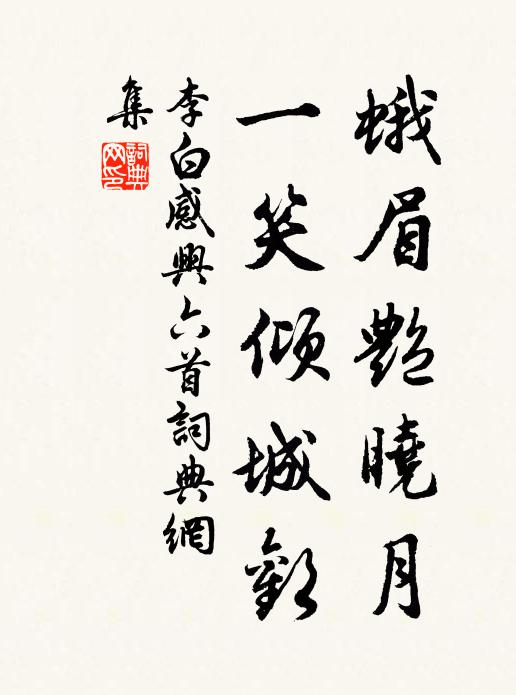 蛾眉艷曉月
一笑傾城歡
李白感興六首詞典網
集
詞典网印